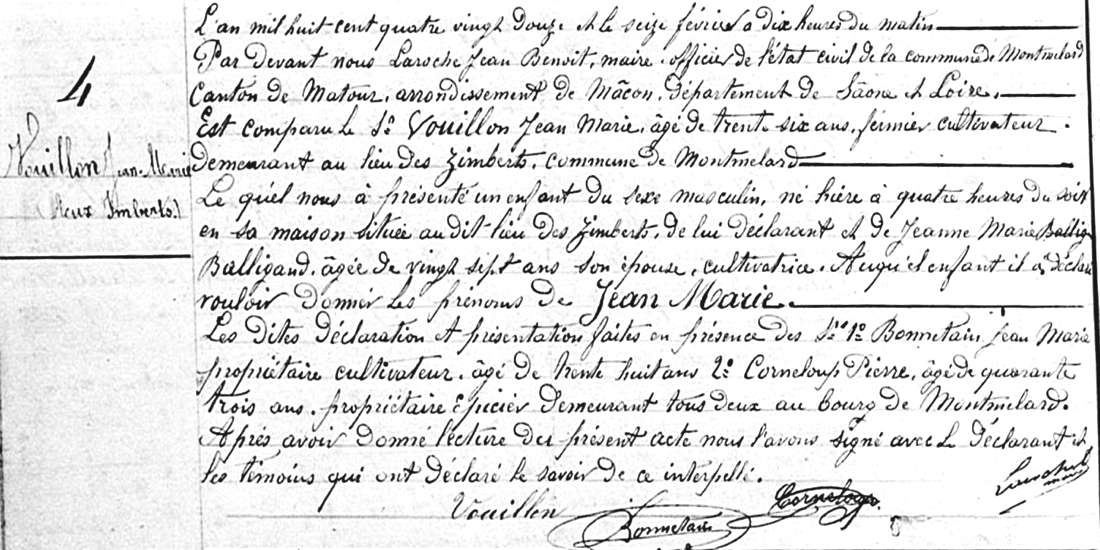 4
Vouillon Jean-Marie
(Aux Imberts.)
L'an mil huit cent quatre vingt douze et le seize février a dix heures du matin
Par Devant nous Laroche Jean Benoit, maire officier de l'état civil de la commune de Montmelard
Canton de Matour, arrondissement de Mâcon, Département de Sâone et Loire.
Est comparu le Sr Vouillon Jean Marie, âgé de trente six ans, fermier cultivateur
demeurant au lieu des Zimberts, commune de Montmelard
Le quel nous à présenté un enfant du sexe masculin, né hière à quatre heures du soir
en sa maison située au dit lieu des Zimberts, de lui déclarant et de Jeanne Marie Ballig
Balligand, âgée de vingt sept ans son épouse, cultivatrice. Auquel enfant il a déclaré
vouloir donner les prénoms de Jean Marie.
Les dites déclaration et présentation faites en présence des Srs 1º Bonnetain Jean Marie
propriétaire cultivateur, âgé de trente huit ans 2º Corneloup Pierre, âgé de quarante
trois ans, propriétaire épicier demeurant tous deux au bourg de Montmelard.
Aprés avoir donné lecture du présent acte nous l'avons signé avec le déclarant et
les témoins qui ont déclaré le savoir de ce interpellé.
Vouillon
Bonnetain
Corneloup
Laroche